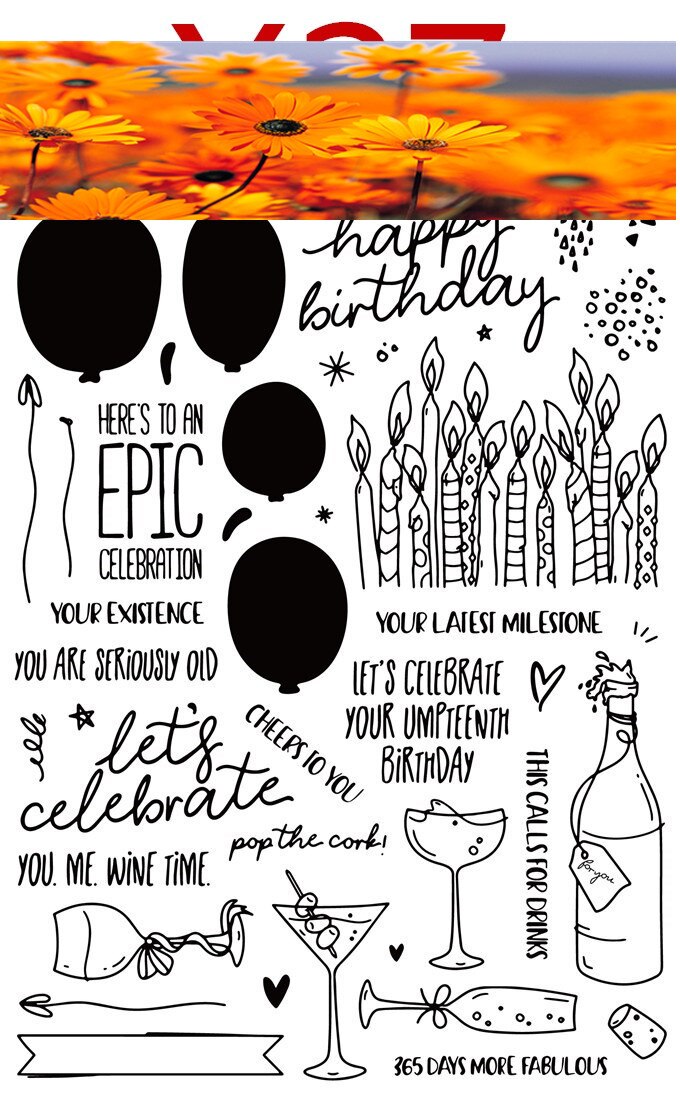 happy
birthday
HERE'S TO AN
EPIC
CELEBRATION
YOUR EXISTENCE
YOUR LATEST MILESTONE
YOU ARE SERIOUSLY OLD
LET'S CELEBRATE
YOUR UMPTEENTH
BIRTHDAY
let's
celebrate
CHEERS TO YOU
THIS CALLS FOR DRINKS
pop the cork!
for you
YOU. ME. WINE TIME.
365 DAYS MORE FABULOUS